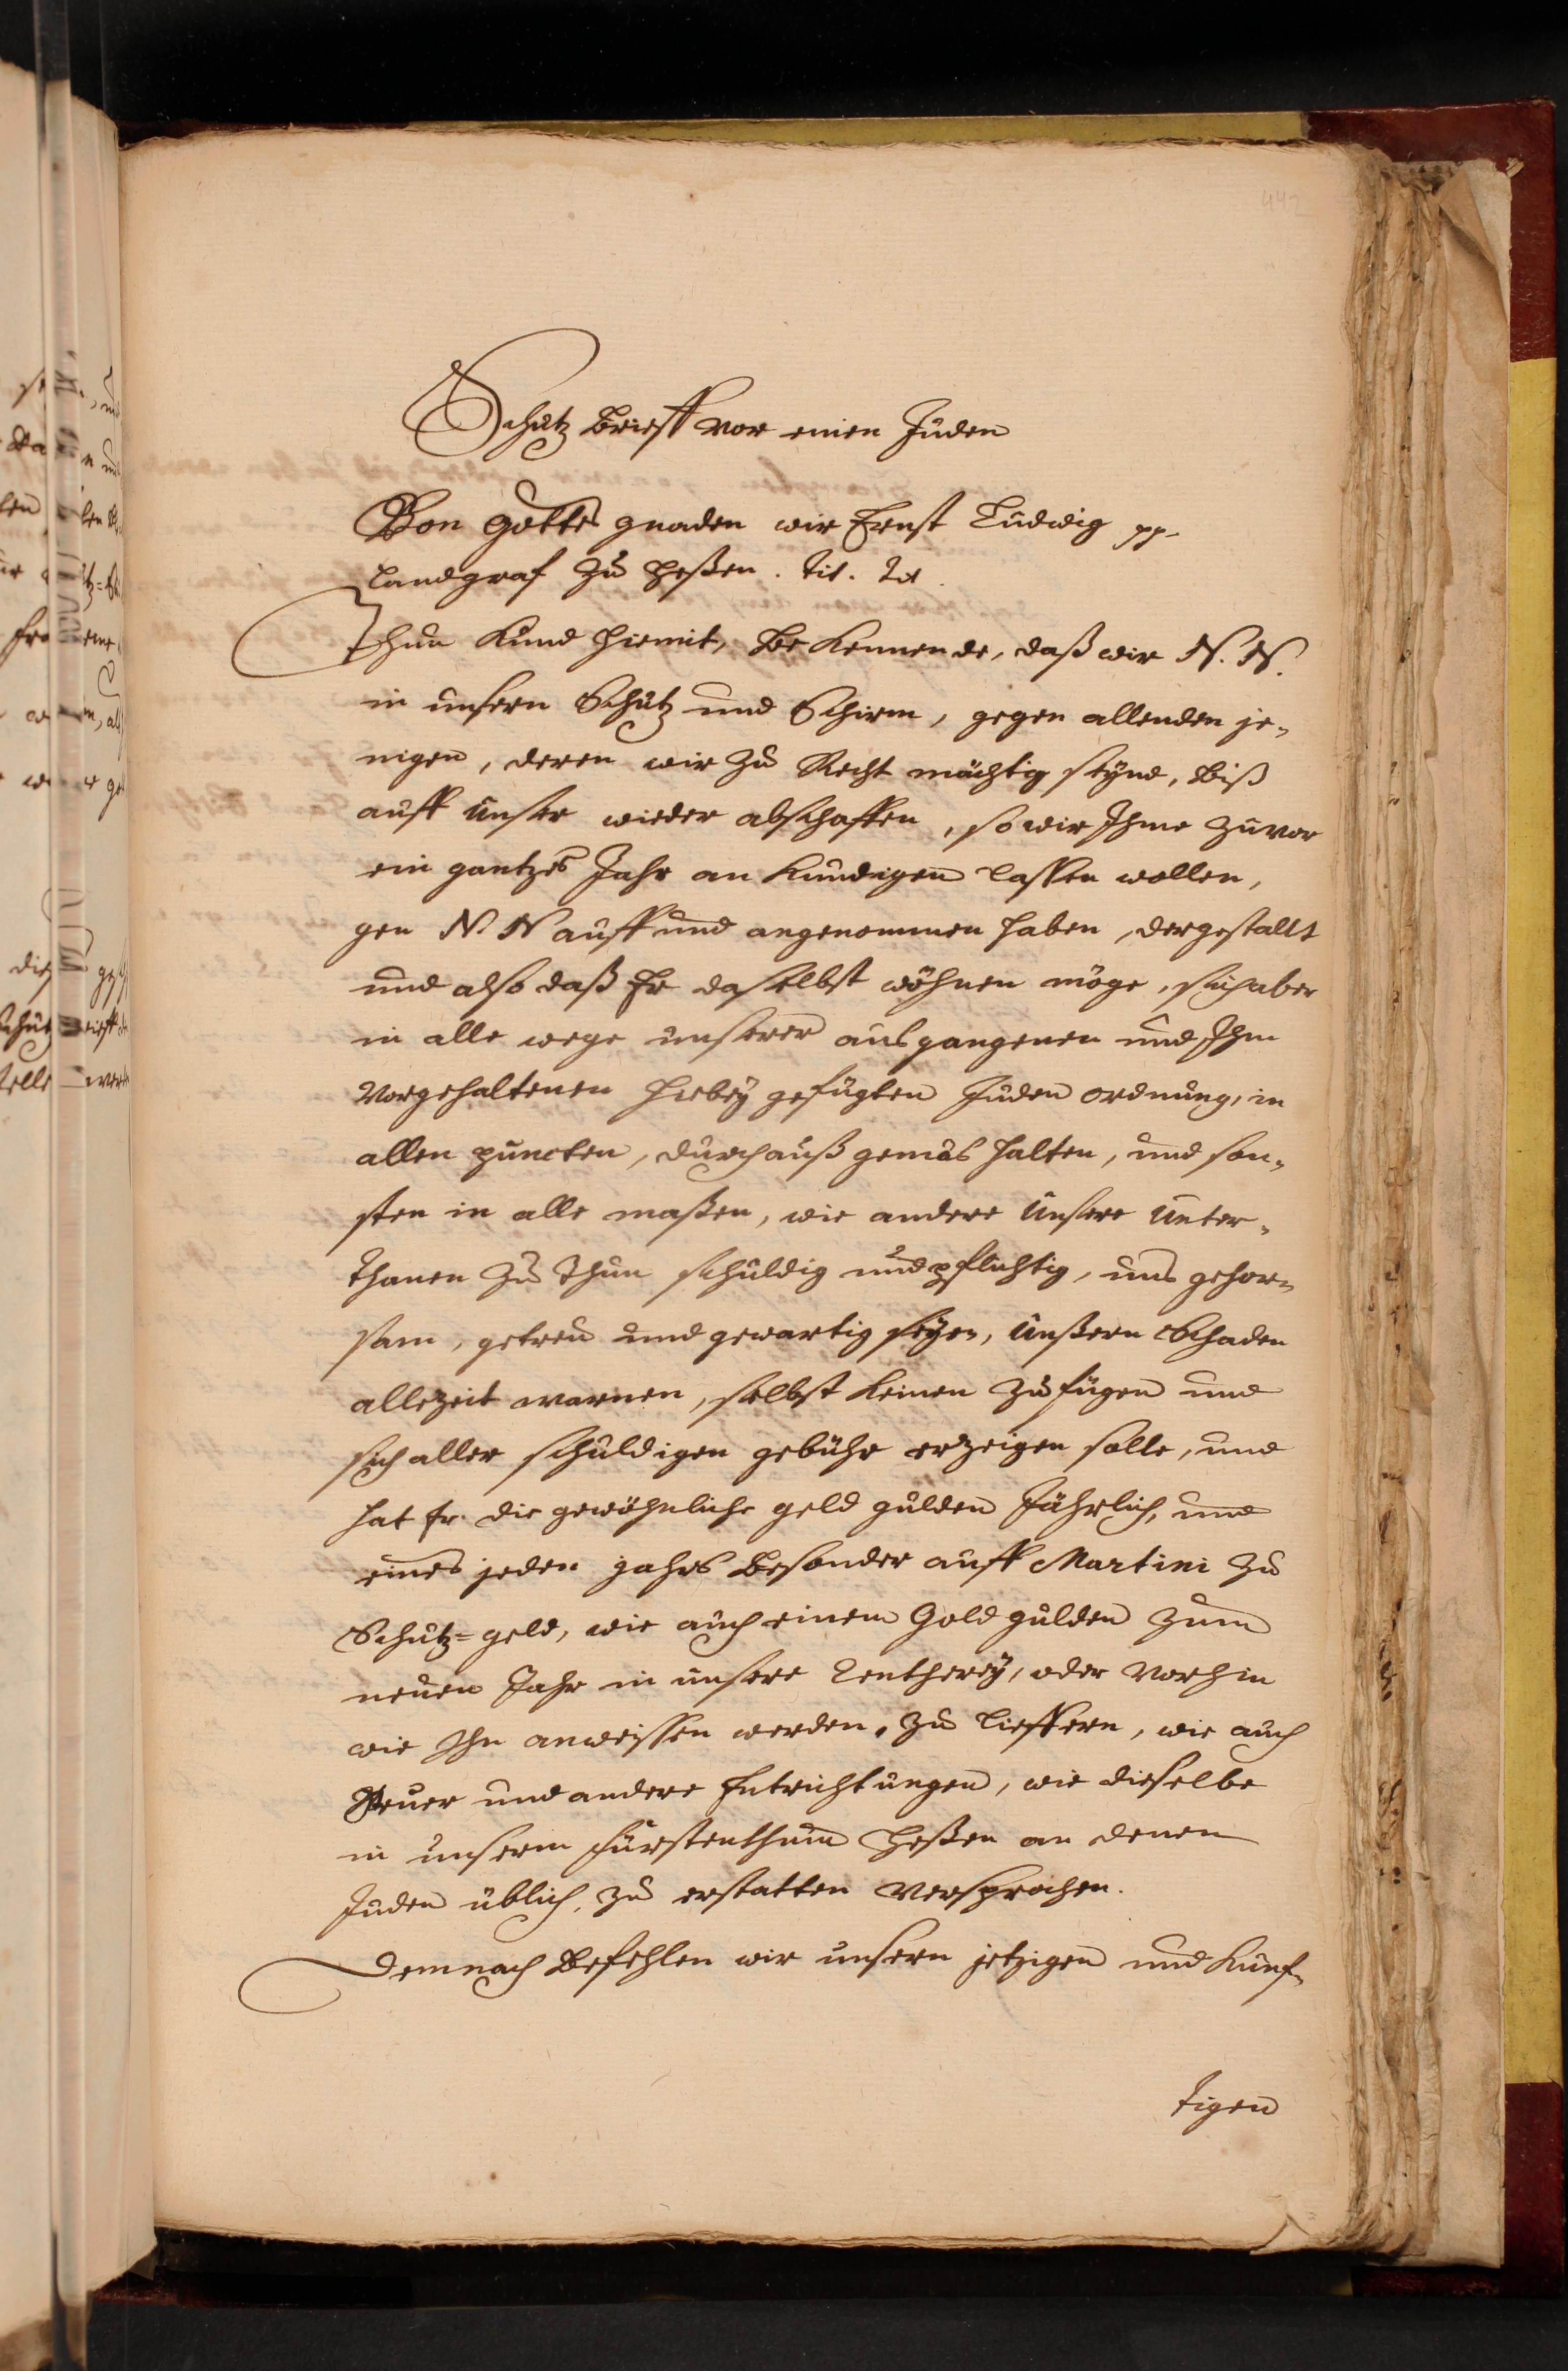 442
Schutz Brieff vor einen Juden
Von Gottes gnaden wir Ernst Ludwig pp.
Landgraf zu Heßen. tit. tot.
Thun Kund hiemit, Bekennende, daß wir N. N.
in unsern Schutz und Schirm, gegen allenden je-
nigen, deren wir zu Recht mächtig seynd, biß
auff unser wieder abschaffen, so wir Ihme zuvor
ein gantzes Jahr an Kundigen lassen wollen,
gen N. N auff und angenommen haben, dergestallt
und also daß Er daselbst wohnen möge, sich aber
in alle wege unserer ausgangenen und Ihm
Vorgehaltenen hiebey gefügten Juden ordnung, in
allen puncten, durchauß gemäs halten, und son-
sten in alle maßen, wie andere unsere Unter-
thanen zu thun schuldig und pflichtig, uns gehor-
sam, getreu und gewartig seyn, unßern Schaden
allezeit warnen, selbst keinen zufügen und
sich aller schuldigen gebühr erzeigen solle, und
hat Er die gewöhnliche geld gulden Jährlich, und
eines jeden jahrs besonder auff Martini zu
Schutz=geld, wie auch einem Gold gulden zum
neuen Jahr in unsere Rentherey, oder Vorhin
wie Ihn anweissen werden, zu lieffern, wie auch
Steuer und andere Entrichtungen, wie dieselbe
in unserm Fürstenthum Heßen an denen
Juden üblich, zu erstatten versprochen.
Demnach Befehlen wir unsern jetzigen und Künf-
tigen